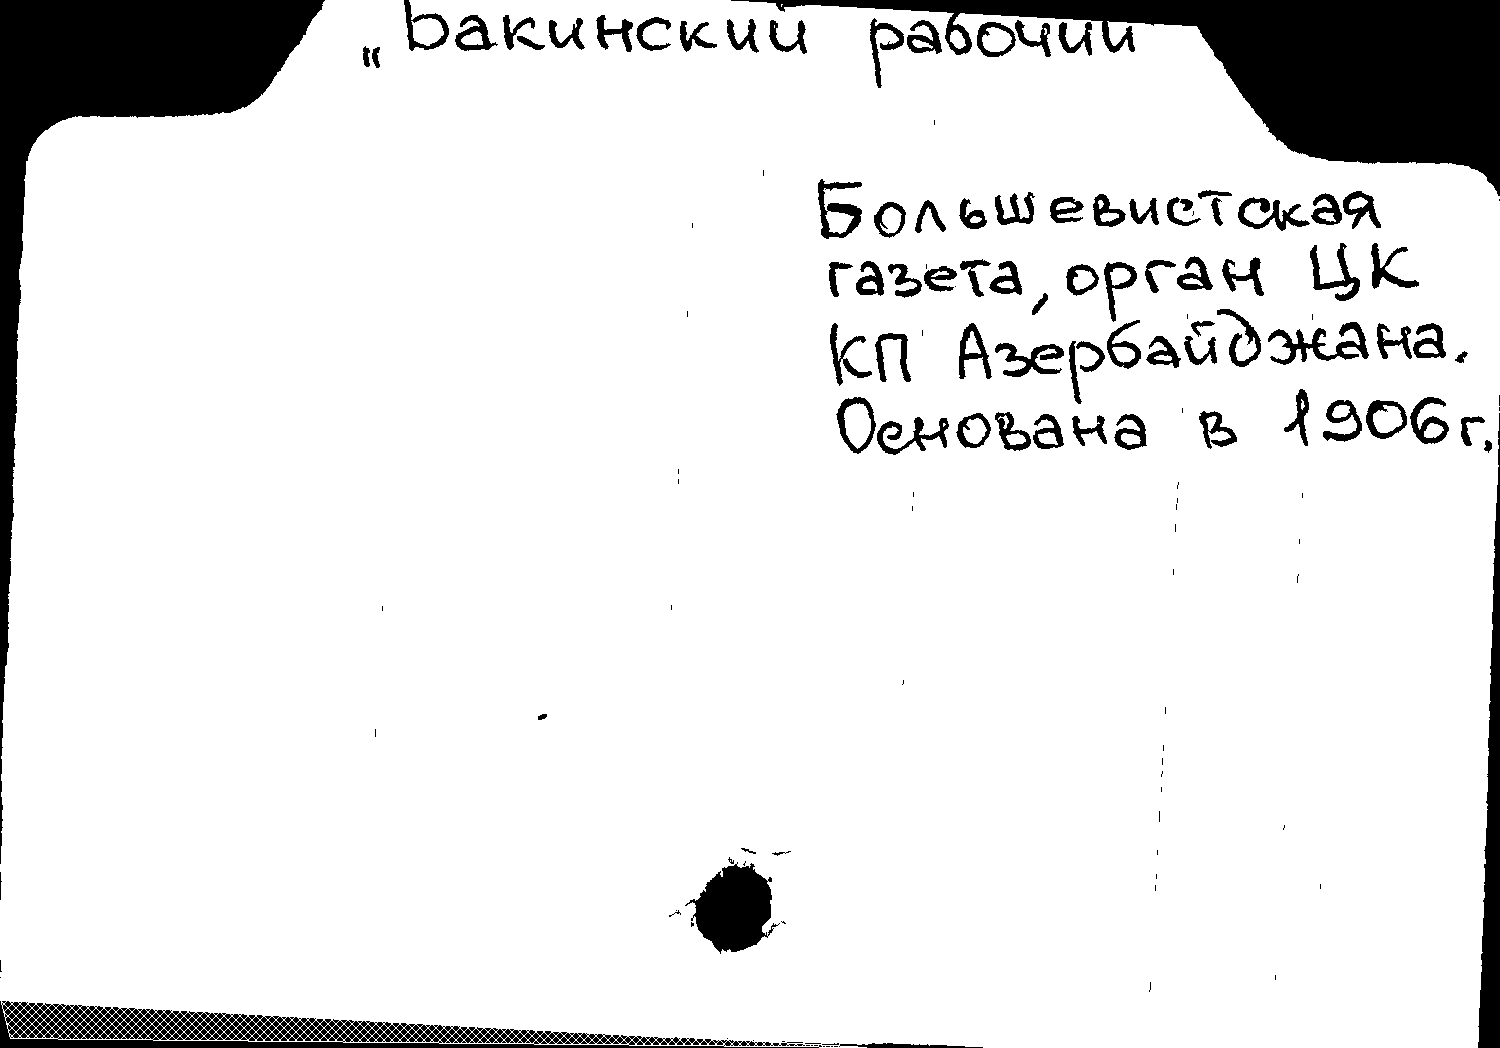 „Бакинский рабочий
Большевистская
газета, орган ЦК
КП Азербайджана.
Основана в 1906г.